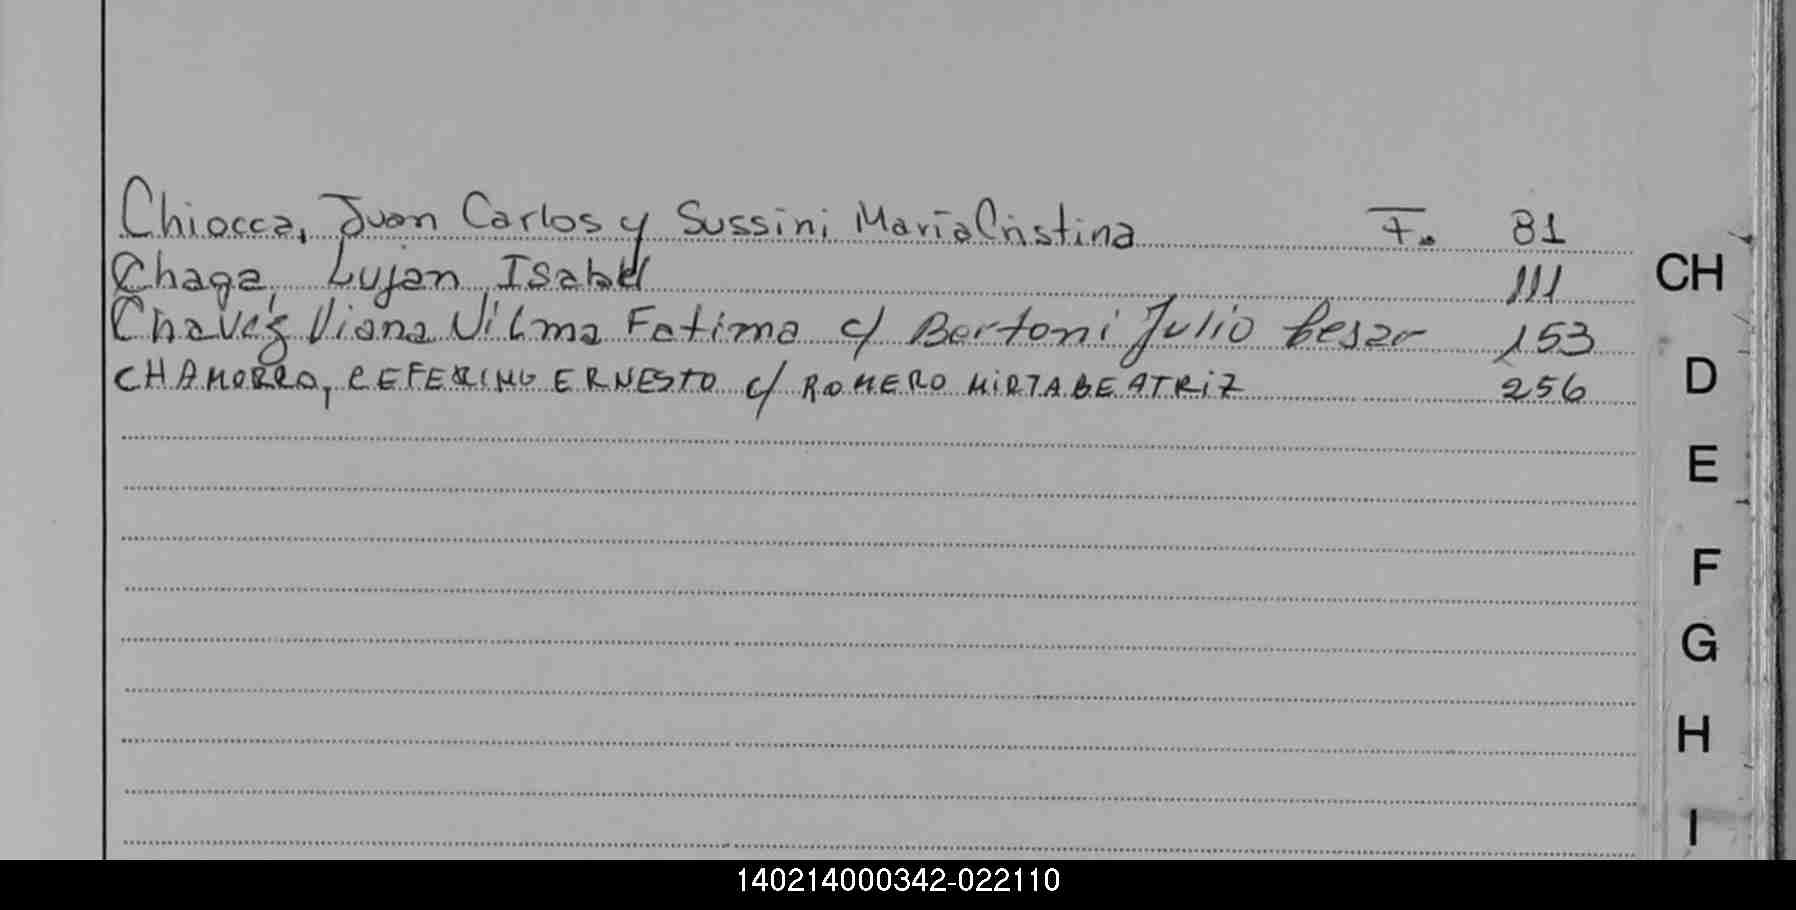 Chiocca, Juan Carlos y Sussini María Cristina F. 81
Chaga, Lujan Isabel 111
Chavez Viana Vilma Fatima c/ Bertoni Julio Cesar 153
CHAMORRO, CEFERINO ERNESTO c/ ROMERO MIRTA BEATRIZ 256
CH
D
E
F
G
H
I
140214000342-022110